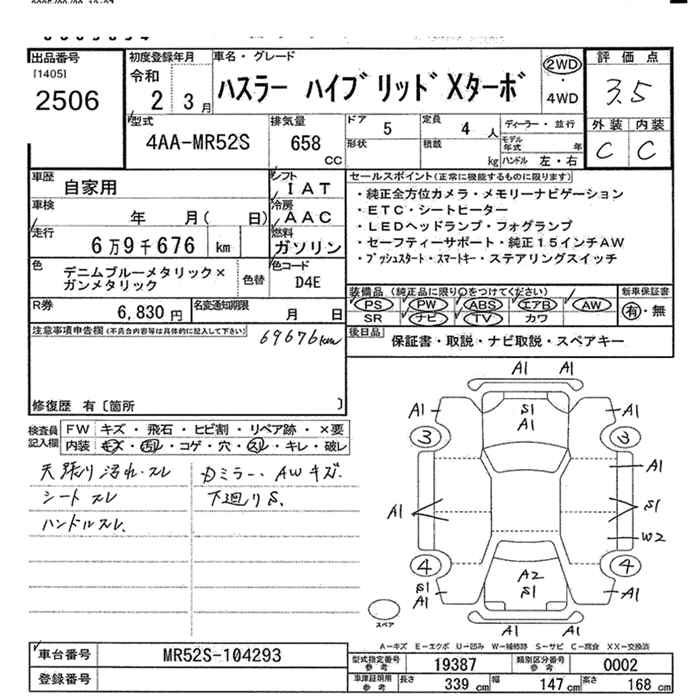 出品番号
[1405]
2506
初度登録年月
令和
2 3月
車名・グレード
ハスラー ハイブリッドXターボ
2WD
・
4WD
評価点
3.5
外装 内装
C C
型式
4AA-MR52S
排気量
658
CC
ドア 5
形状
定員 4 人
積載 kg
ディーラー・並行
モデル年式 年
ハンドル 左・右
車歴
自家用
シフト
IAT
車検
年 月( 日)
冷房
AAC
走行
6万9千676 km
燃料
ガソリン
色
デニムブルーメタリック×
ガンメタリック
色替
色コード
D4E
R券
6,830円
名変通知期限
月 日
セールスポイント(正常に機能するものに限ります)
・純正全方位カメラ・メモリーナビゲーション
・ETC・シートヒーター
・LEDヘッドランプ・フォグランプ
・セーフティーサポート・純正15インチAW
・プッシュスタート・スマートキー・ステアリングスイッチ
装備品(純正品に限り○をつけてください)
PS PW ABS エアB AW
SR ナビ TV カワ
新車保証書
有・無
後日品
保証書・取説・ナビ取説・スペアキー
注意事項申告欄(不具合内容等は具体的に記入して下さい)
69676km
修復歴 有〔箇所 〕
検査員
記入欄
FW キズ・飛石・ヒビ割・リペア跡・×要
内装 キズ・汚れ・コゲ・穴・スレ・キレ・破レ
天張り汚れ・スレ
シートスレ
ハンドルスレ、
Dミラー、AWキズ、
下廻りS、
A1 A1
A1 S1 A1 A1
3 3
A1
A1 S1
W2
4 A2 4
S1 A1 S1 S1 A1
A1 A1
スペア
A-キズ E-エクボ U-凹み W-補修跡 S-サビ C-腐食 XX-交換済
車台番号 MR52S-104293
登録番号
型式指定番号
参考
19387
類別区分番号
参考
0002
車庫証明用
参考
長さ 339 cm 幅 147 cm 高さ 168 cm